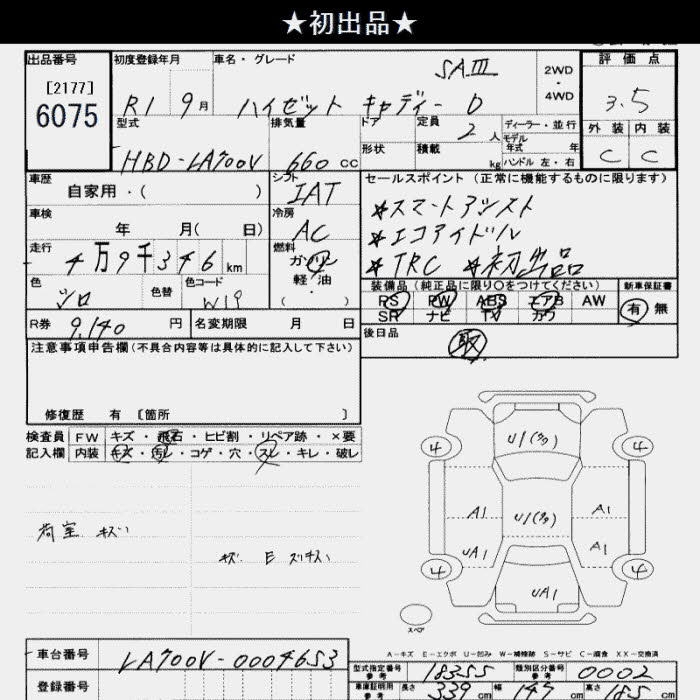 ★初出品★
出品番号 初度登録年月 車名・グレード 評価点
[2177] SAⅢ 2WD
6075 R1 9月 ハイゼット キャディー D 4WD 3.5
型式 排気量 ドア 定員 2人 ディーラー・並行 外装 内装
形状 積載 kg モデル年式 年
HBD-LA700V 660cc ハンドル 左・右 C C
車歴 自家用・( ) シフト IAT セールスポイント (正常に機能するものに限ります)
車検 年 月( 日) 冷房 AC *スマートアシスト
*エコアイドル
走行 4万9千346km 燃料 ガソリン *TRC *初出品
軽油・( )
色 シロ 色替 色コード W19 装備品(純正品に限り○をつけてください) 新車保証書
PS PW ABS エアB AW 有 無
SR ナビ TV カワ
R券 9,140円 名変期限 月 日 後日品
注意事項申告欄(不具合内容等は具体的に記入して下さい) 取
修復歴 有 [箇所 ]
検査員 FW キズ・飛石・ヒビ割・リペア跡・×要
記入欄 内装 キズ・汚レ・コゲ・穴・スレ・キレ・破レ
4 4
A1 A1
荷室 キズ UA1 A1
4 4
UA1
スペア
A-キズ E-エクボ U-凹み W-補修跡 S-サビ C-腐食 XX-交換済
車台番号 LA700V-0004653
型式指定番号 参考 18355 類別区分番号 参考 0002
登録番号 車庫証明用 参考 長さ 339cm 幅 147cm 高さ cm